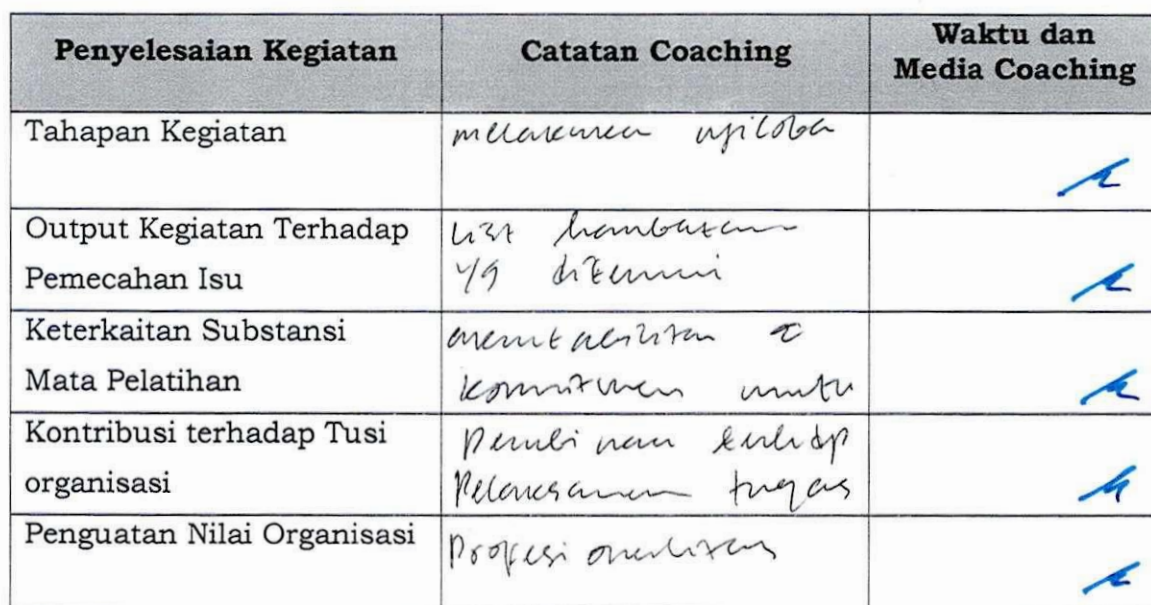 Penyelesaian Kegiatan
Catatan Coaching
Waktu dan
Media Coaching
Tahapan Kegiatan
melakukan ujicoba
Output Kegiatan Terhadap
Pemecahan Isu
List hambatan
yg ditemui
Keterkaitan Substansi
Mata Pelatihan
akuntabilitas &
komitmen mutu
Kontribusi terhadap Tusi
organisasi
Pembinaan terhdp
Pelaksanaan tugas
Penguatan Nilai Organisasi
Profesionalitas